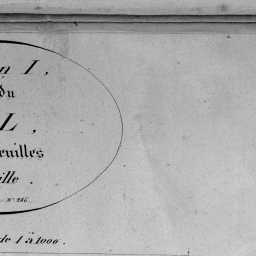 n I,
du
L,
euilles
ille.
N° 286.
de 1 à 1000.